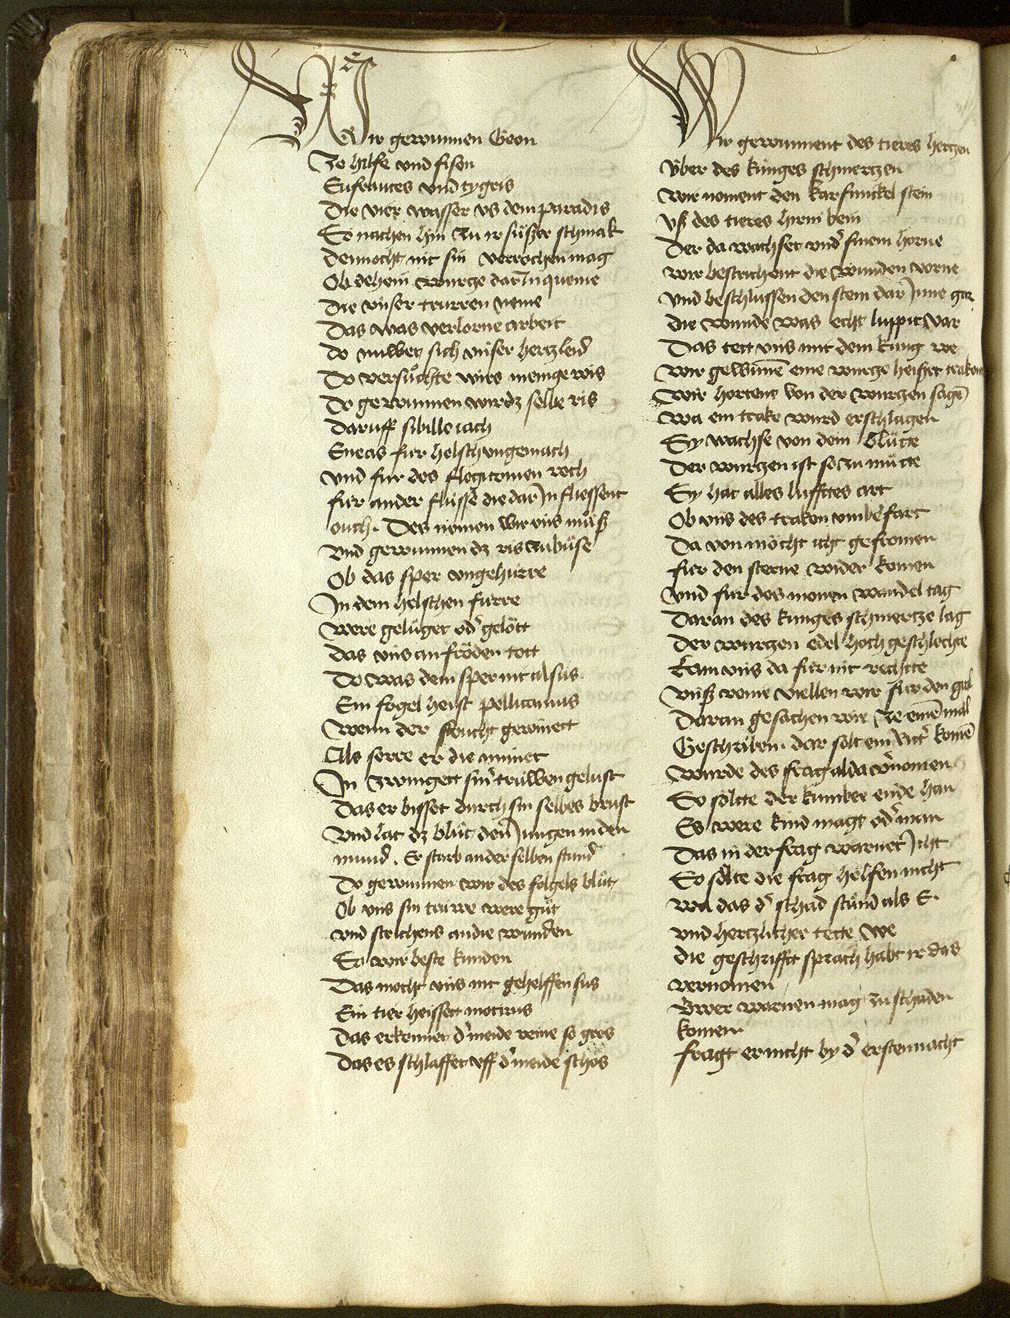 Wir gewunnen Geon
Ze hilfe vnd fison
Eufrattes vnd tygris
Die vier wasser vs dem paradis
So nachen hin zu ir süsser schmak
Dennocht nit sin verrochen mag
Ob dehein wurtze dar jn queme
Die vnser trurren neme
Das was verlorne arbeit
Do nuwet sich vnser hertzleid
Do versuchte wirs menge wis
Do gewunnen wir dz selbe ris
Daruff sibille iach
Eneas fur helsch vngemach
vnd fur des flegitonien roch
fur ander flüsse die dar jn fliessent
ouch. Des nomen wir vns muss
vnd gewunnen dz ris zu busse
Ob das sper vngehurre
In dem helschen furre
Were gelüget od' gelött
das vns an fröden tott
Do was dem sper nit alsus
Ein fogel heist pellicanus
Wenn der frucht gewinett
Als serre er die minnet
In zwinget sin' truwen gelust
Das er bisset durch sin selbes brust
vnd lat dz blut den jungen in den
mund. Er starb an der selben stund
Do gewunnen wir des fogels blut
Ob vns sin truwe were gut
vnd strichens an die wunden
So wir beste kunden
Das mocht vns nit gehelffen sus
Ein tier heisset monirus
Das erkennet d' meide reine so gros
Das es schlaffet vff d' meide schos
Wir gewunnent des tieres hertzen
Vber des kunges schmertzen
wir noment den karfunckel stein
vss des tieres hirni bein
Der da wachset vnd' sinem horne
wir bestrichent die wunden vorne
vnd beschlussen den stein dar jnne gar
die wunde was echt luppic var
Das tett vns mit dem kung we
wir gewunnē eine wurtze heisset trakon
Wir hortent von der wurtzen sagē
wa ein trake wurd erschlagen
Sy wachse von dem blute
Der wurtzen ist so zu mute
Sy hat alles lufftes art
Ob vns des trakon vmbefart
Da von möcht icht gefromen
fur den sterne wider komen
vnd fur des monen wandel tag
Daran des kunges schmertze lag
Der wurtzen edel hoch geschlechte
kam vns da fur nit rechtte
vnsz venie viellen wir fur den gral
Daran gesachen wir ze einē mal
Geschriben. dar solt ein Rit' komē
wurde des frag alda v'nomen
So söltte der kumber ende han
Es were kind magt od' man
Das in der frag warnet jcht
So sölte die frag helfen nicht
wa das d' schad stund als E.
vnd hertzlicher tette we
die geschrifft sprach habt ir das
vernomen
Vwer warnen mag zu schaden
komen
fragt er nicht by d' ersten nacht